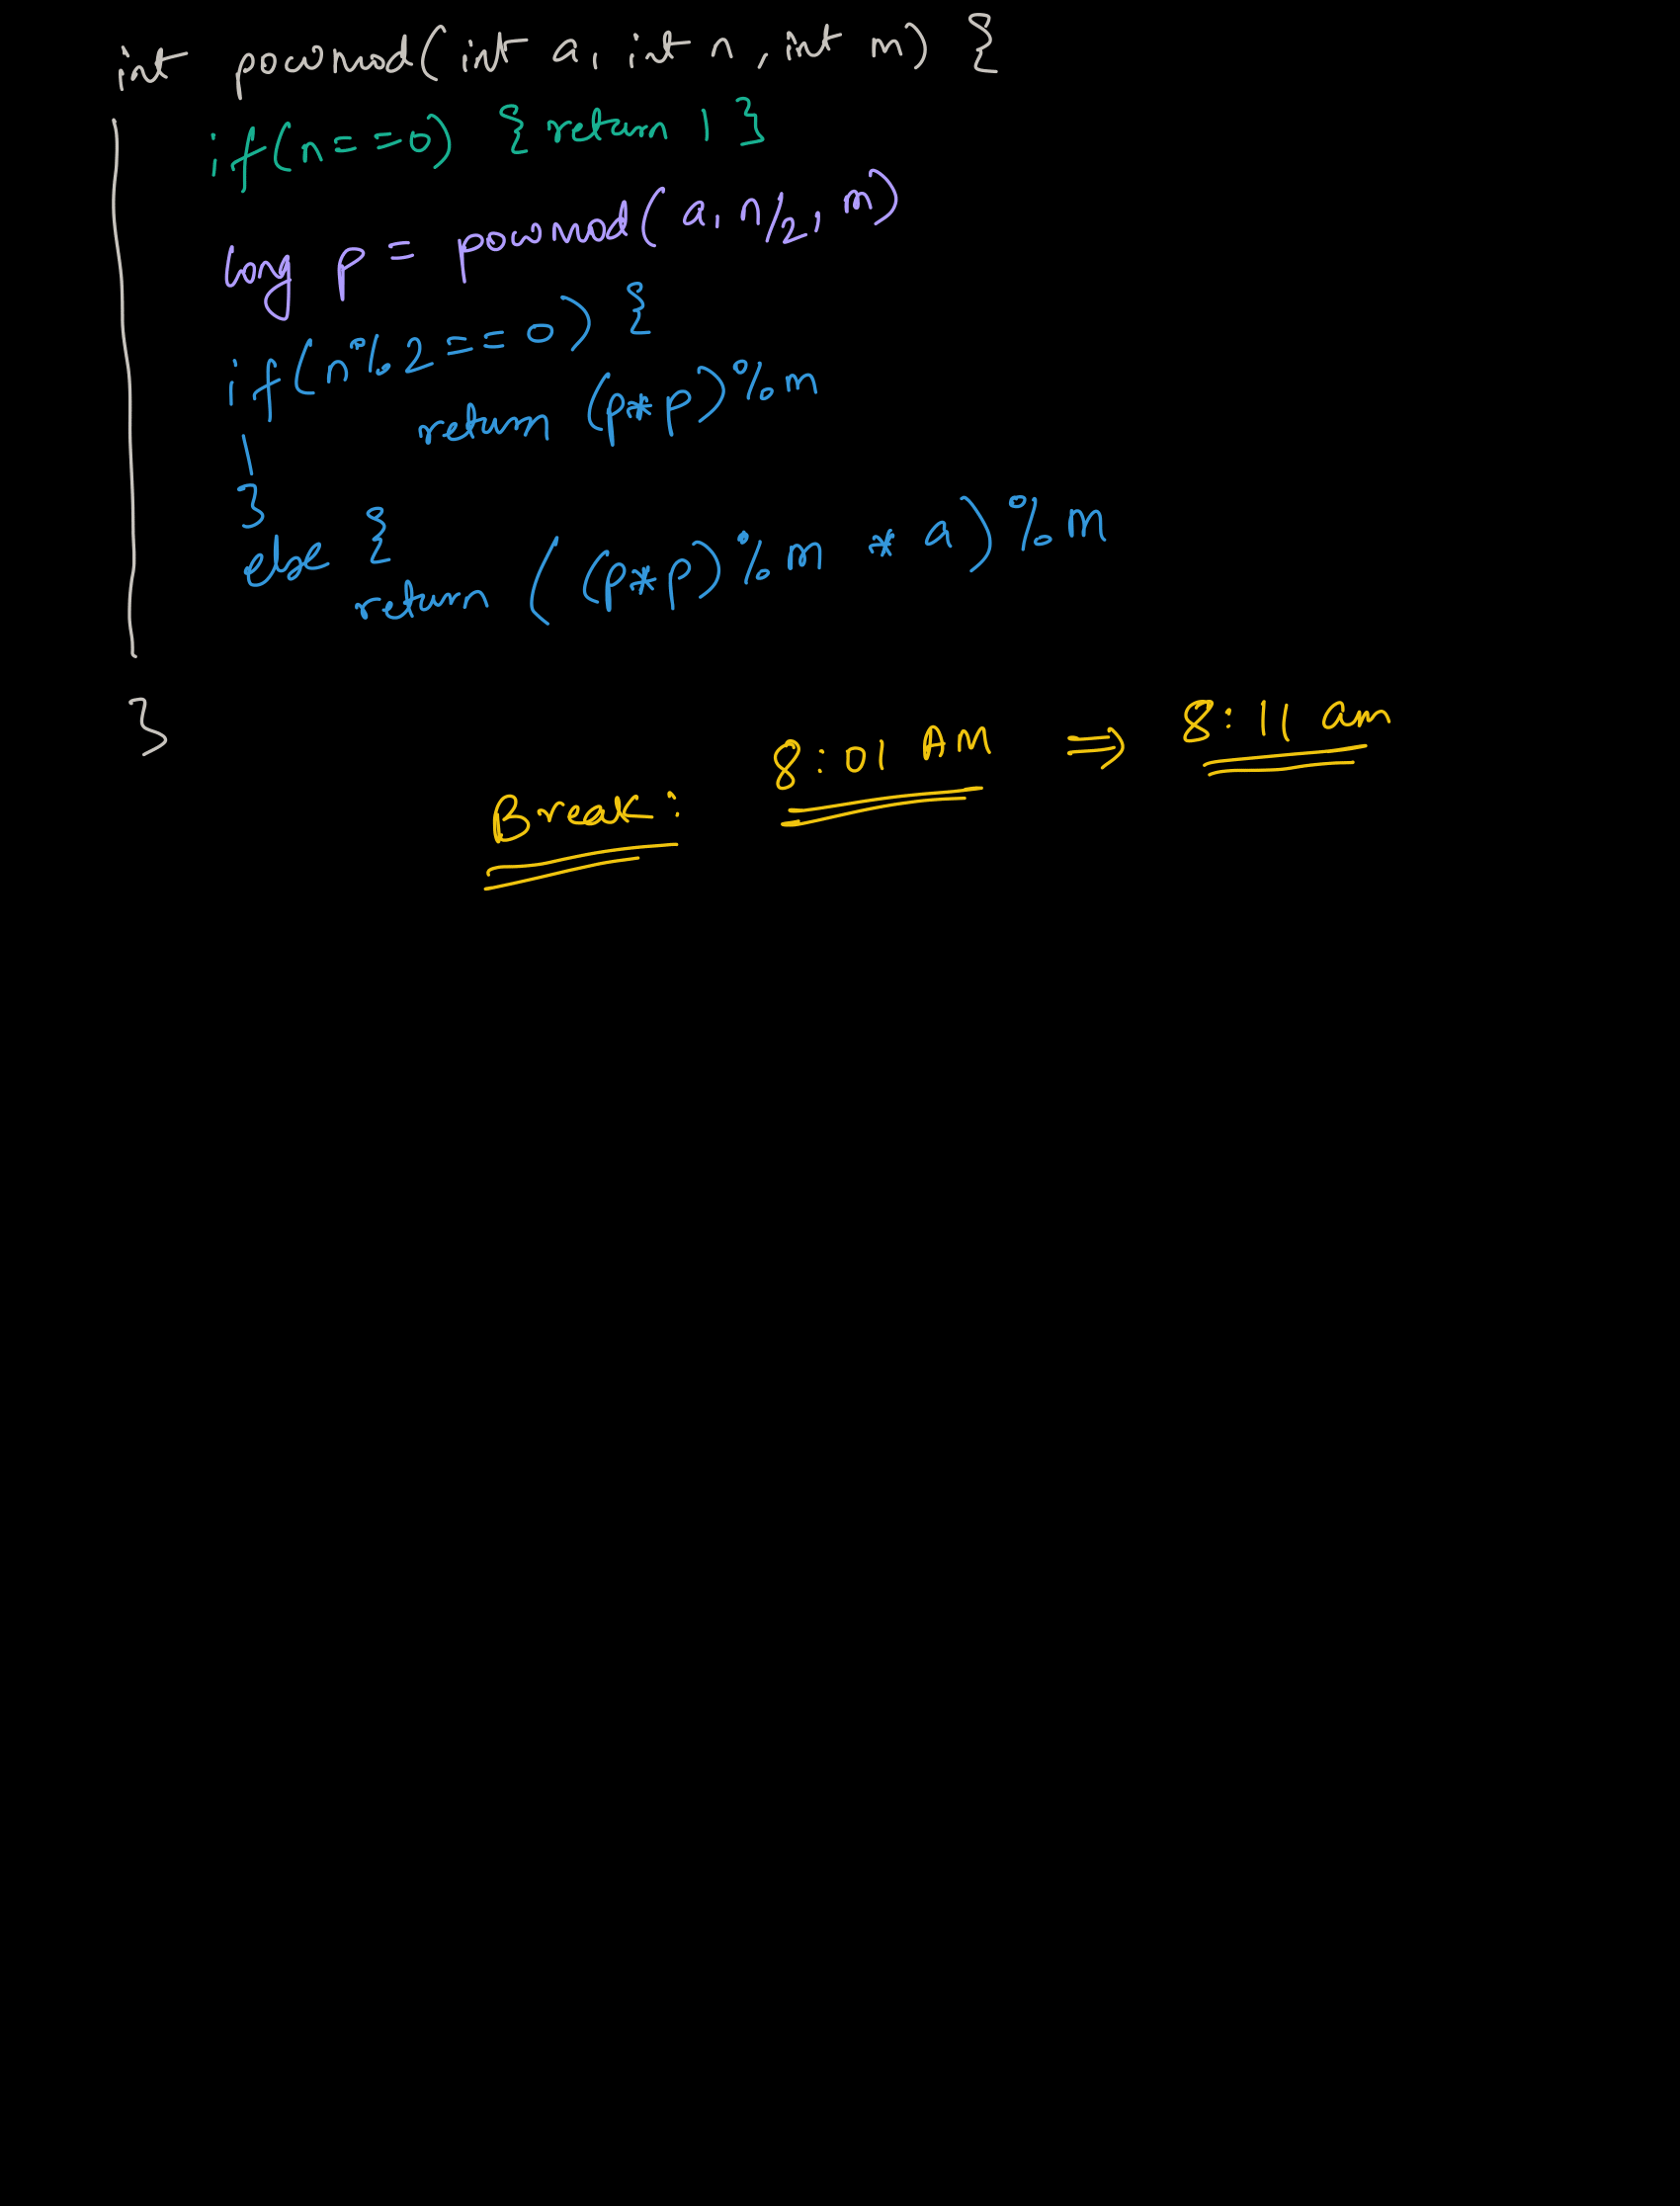 int powmod(int a, int n, int m) {
if(n==0) {return 1}
long p = powmod(a, n/2, m)
if(n%2==0) {
return (p*p)%m
}
else {
return ((p*p)%m * a)%m
}
Break: 8:01 AM ⇒ 8:11 am